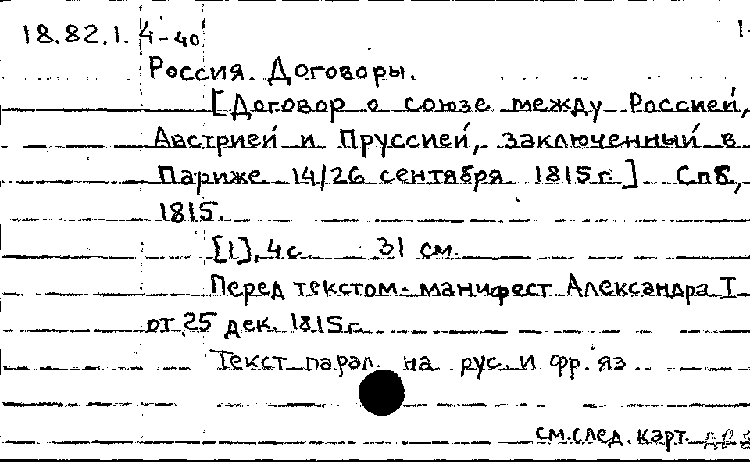 18.82.1.4-40
Россия. Договоры.
[Договор о союзе между Россией,
Австрией и Пруссией, заключенный в
Париже 14/26 сентября 1815 г.] Спб,
1815.
[1], 4 с. 31 см.
Перед текстом- манифест Александра I
от 25 дек. 1815 г.
Текст парал. на рус. и фр. яз.
см.след. карт.